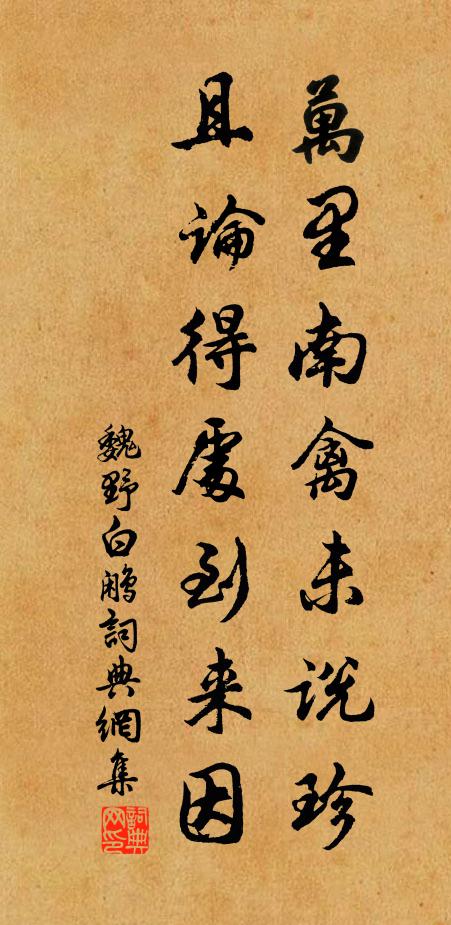 萬里南禽未説珍
且論得處到来因
魏野白鷴詞典網集
詞典網印